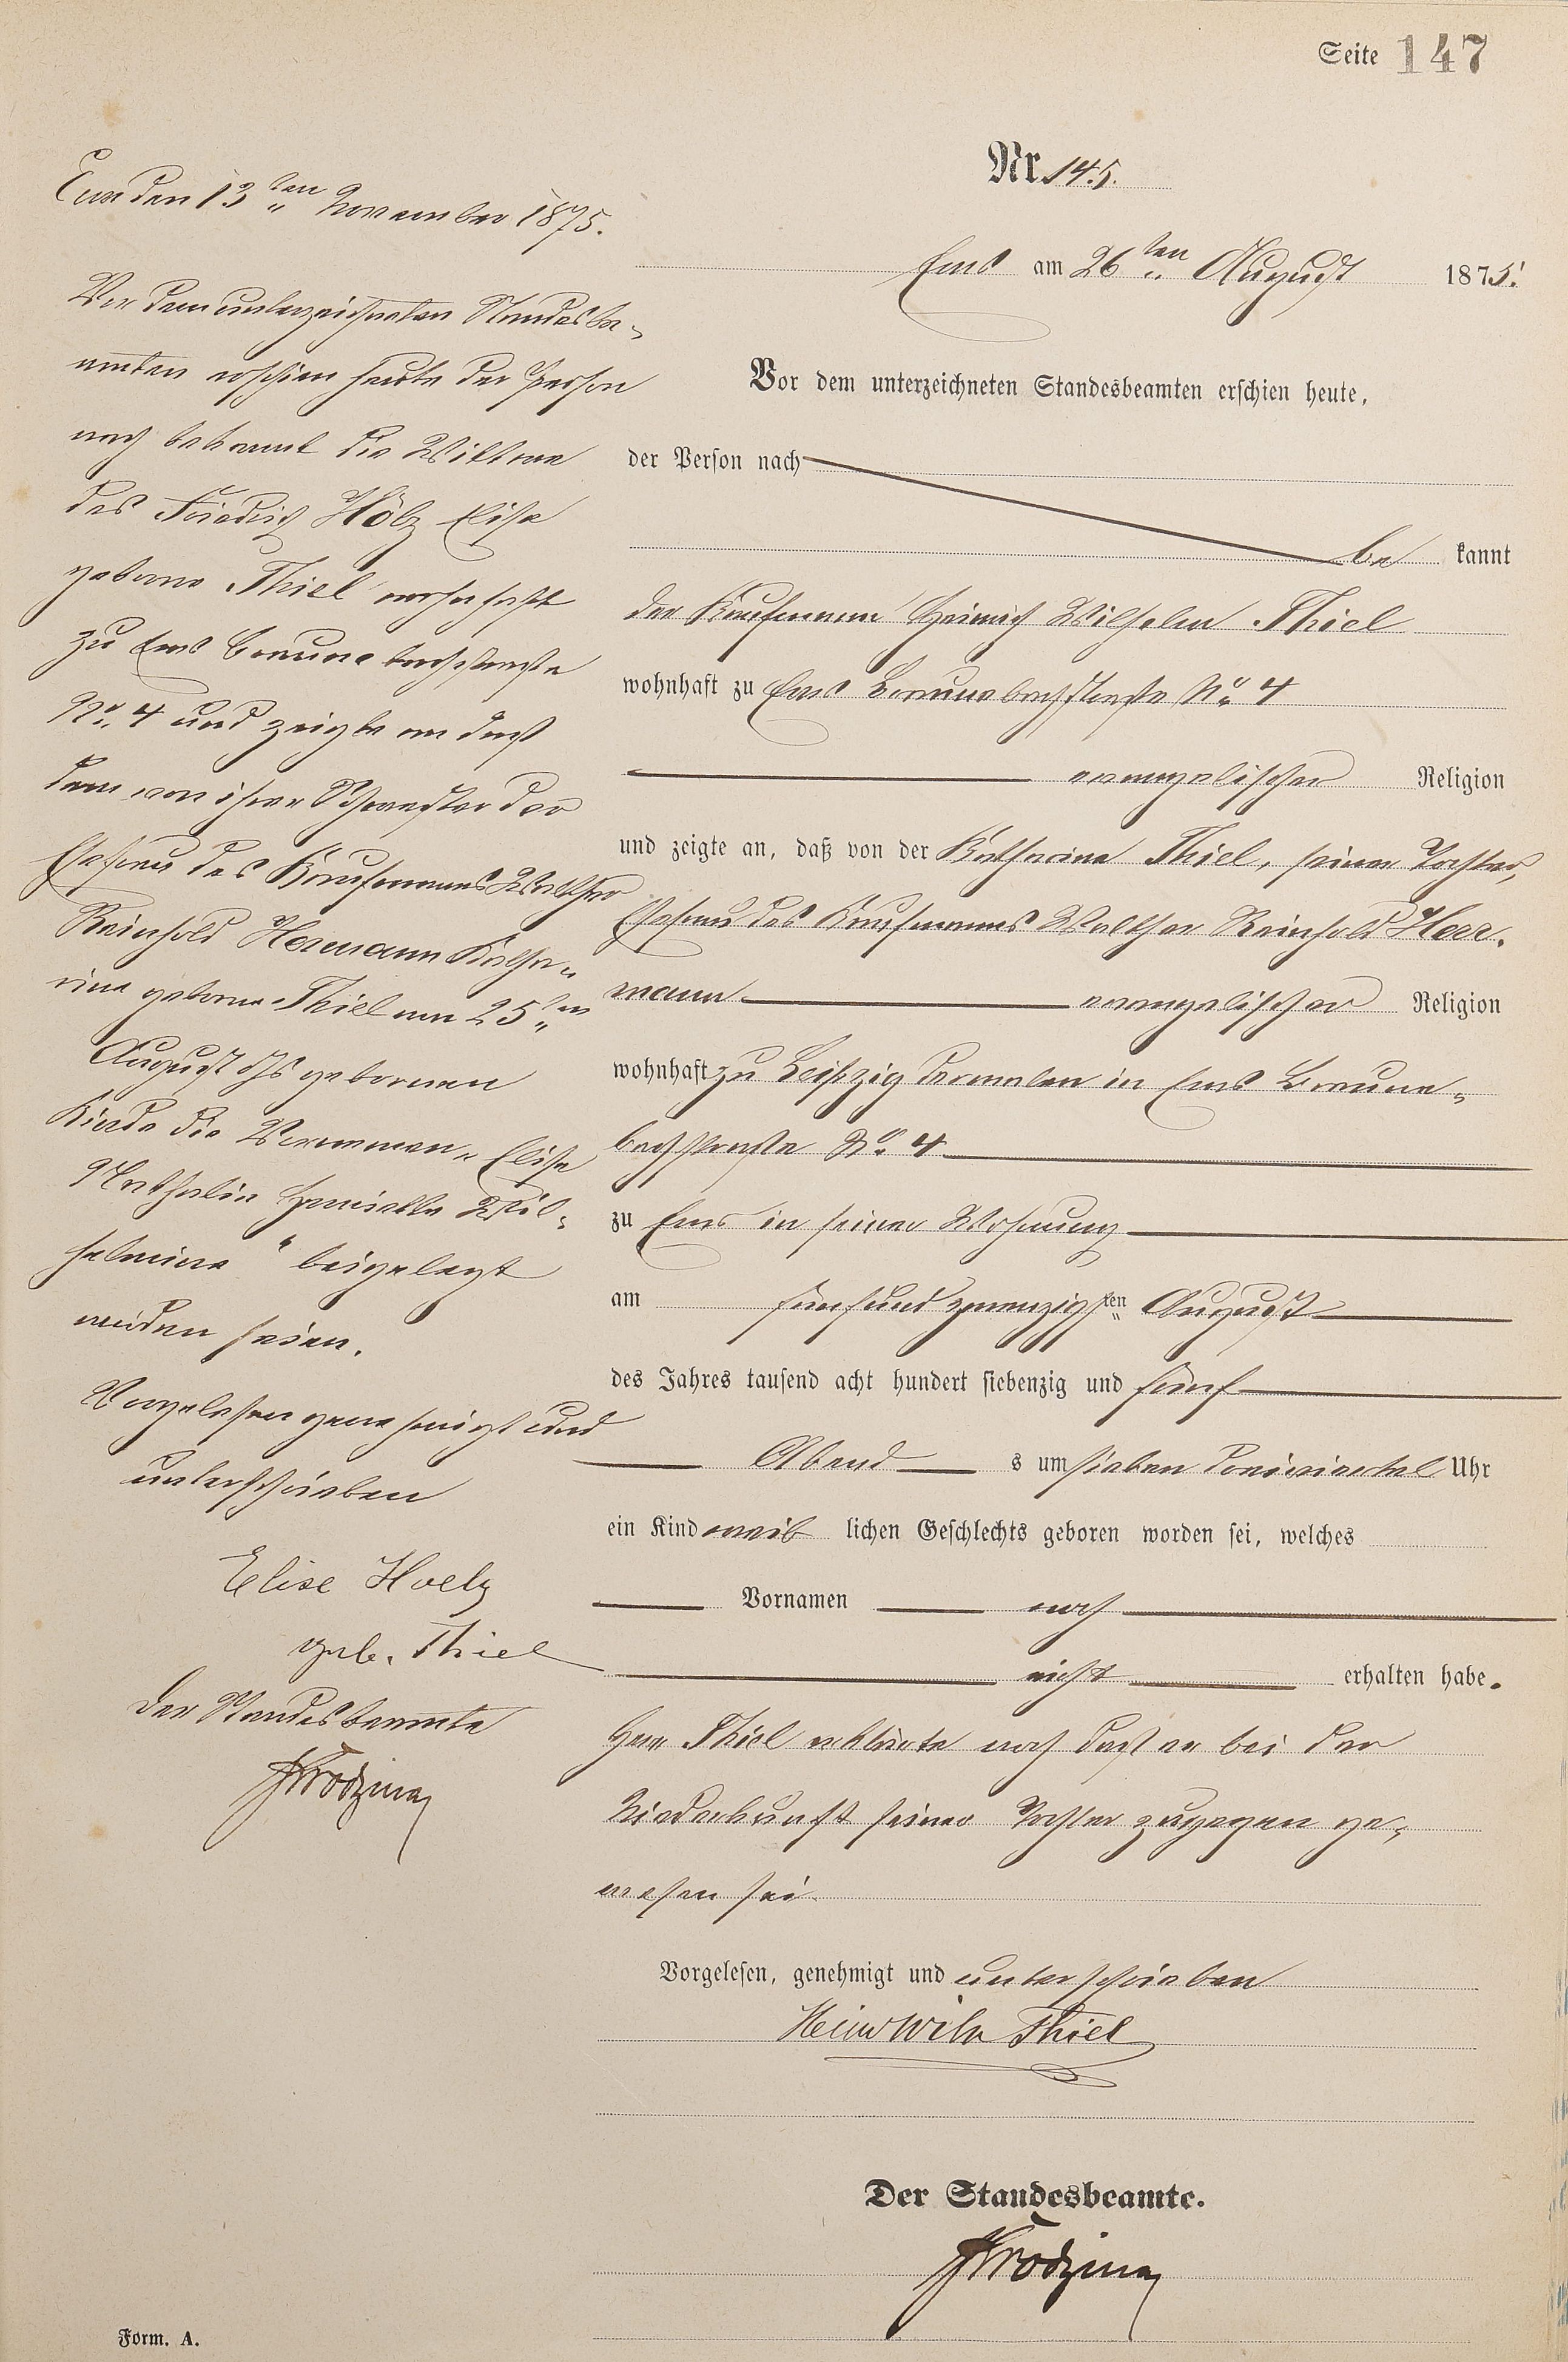 Seite 147
Nr. 145.
Ems am 26ten August 1875.
Vor dem unterzeichneten Standesbeamten erschien heute,
der Person nach
be kannt
der Kaufmann Heinrich Wilhelm Thiel
wohnhaft zu Ems Braunebachstraße No 4
evangelischer Religion
und zeigte an, daß von der Katharina Thiel, seiner Tochter,
Ehefrau des Kaufmanns Walther Reinhold Herr-
mann evangelischer Religion
wohnhaft zu Leipzig dermalen in Ems Braune-
bachstraße No. 4
zu Ems in seiner Wohnung
am fünfundzwanzigsten August
des Jahres tausend acht hundert siebenzig und fünf
Abend s um sieben dreiviertel Uhr
ein Kind weib lichen Geschlechts geboren worden sei, welches
Vornamen noch
nicht erhalten habe.
Herr Thiel erklärte noch daß er bei der
Niederkunft seiner Tochter zugegen ge-
wesen sei.
Vorgelesen, genehmigt und unterschrieben
Heinr Wilh Thiel
Der Standesbeamte.
Form. A.
Ems den 13ten November 1875.
Vor dem unterzeichneten Standesbe-
amten erschien heute der Person
nach bekannt die Wittwe
des Friedrich Hölz Elise
geborne Thiel wohnhaft
zu Ems Braunebachstraße
No. 4 und zeigte an daß
dem von ihrer Schwester der
Ehefrau des Kaufmanns Walther
Reinhold Hermann Katha-
rina geborne Thiel am 25ten
August ds Js geborenen
Kinde die Vornamen „Elise
Nathalie Henriette Wil-
helmine" beigelegt
worden seien.
Vorgelesen genehmigt und
unterschrieben
Elise Hoelz
geb. Thiel
Der Standesbeamte